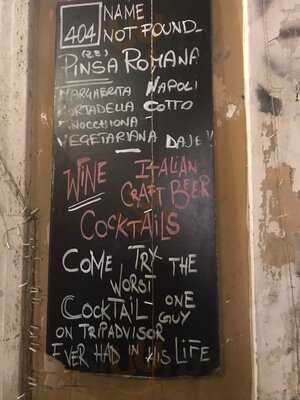 404 NAME
NOT FOUND_
(RE)
PINSA ROMANA
MARGHERITA NAPOLI
MORTADELLA COTTO
FINOCCHIONA
VEGETARIANA DAJE!!
WINE ITALIAN
CRAFT BEER
COCKTAILS
COME TRY THE
WORST
COCKTAIL ONE
GUY
ON TRIPADVISOR
EVER HAD IN HIS LIFE